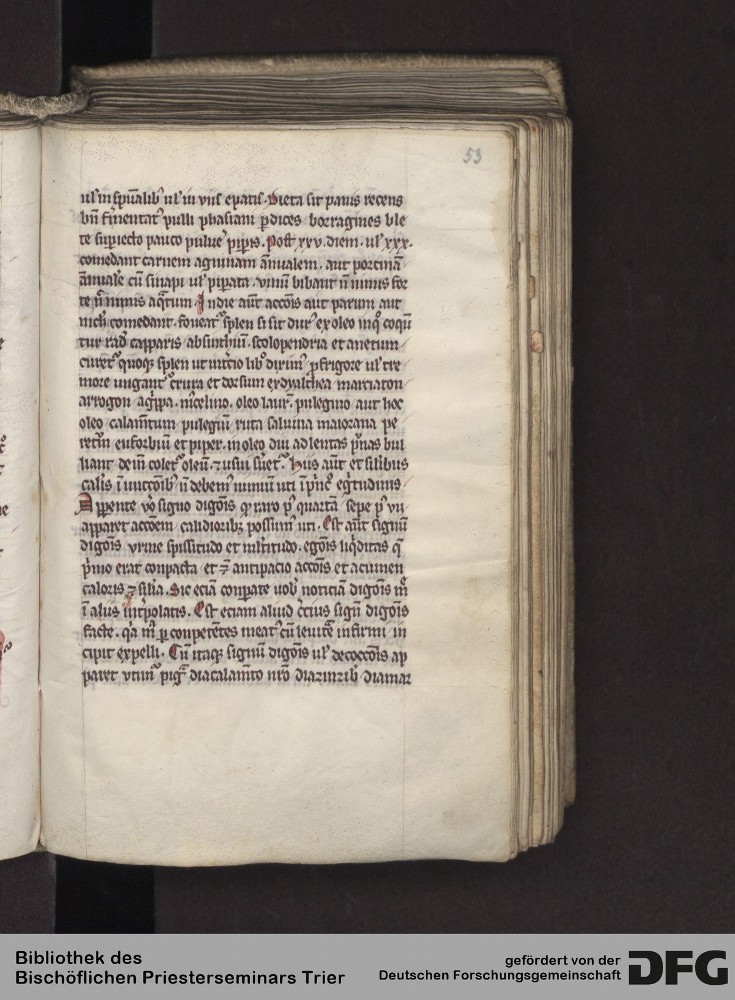 53
ul' in spūalib' ul' in viis epatis. Dieta sit panis recens
bn̄ fm̄entat' pulli phasiani pdices borragines ble
te supiecto pauco puluẽ pipis. Post xxv. diem. ul' xxx.
comedant carnem agninam ānualem. aut porcinā
ānuale cū sinapi ul' pipata. vinū bibant n̄ nimis for
te n̄ nimis aq̄tum. In die aūt accōis aut parum aut
nich' comedant. foueat' splen si sit dur' ex oleo in q̊ coqū
tur rad' capparis absinthiū. scolopendria et anetum
curet' quoq; splen ut in t'cio lib' dixim' p frigore ul' tre
more ungant' crura et dorsum ex dyalthea marciaton
arrogon ag'ppa. m'celino. oleo laur'. pulegino aut hoc
oleo calam̄tum pulegiū ruta saluina maiorana pe
retrū euforbiū et piper. in oleo diu ad lentas p'nas bul
liant dein̄ colet' oleū. ⁊ usui s'uet'. Hiis aūt et silibus
calis ī unccōib' n̄ debem' nimiū uti ī p'nc' eg'tudinis
Apparente v̊o signo digōis q̄ raro p' quartā sepe p' vii
apparet accōem calidiorib; possum' uti. Est aūt signū
digōis vrine spissitudo et m'ltitudo. egōis liq'ditas q̄
p'mo erat conpacta et ⁊ antipacio accōis et acumen
caloris ⁊ silīa. Sic eciā conpate uob' noticiā digōis m̄
ī aliis int'polatis. Est eciam aliud c'cius signū digōis
facte. q'a m̄ p conpetentes meat' cū leuitate infirmi in
cipit expelli. Cū itaq; signū digōis ul' decoccōis ap
paret vtim' pig' diacalam̄to nr̄o diazinzib' diamar
Bibliothek des
Bischöflichen Priesterseminars Trier
gefördert von der
Deutschen Forschungsgemeinschaft
DFG